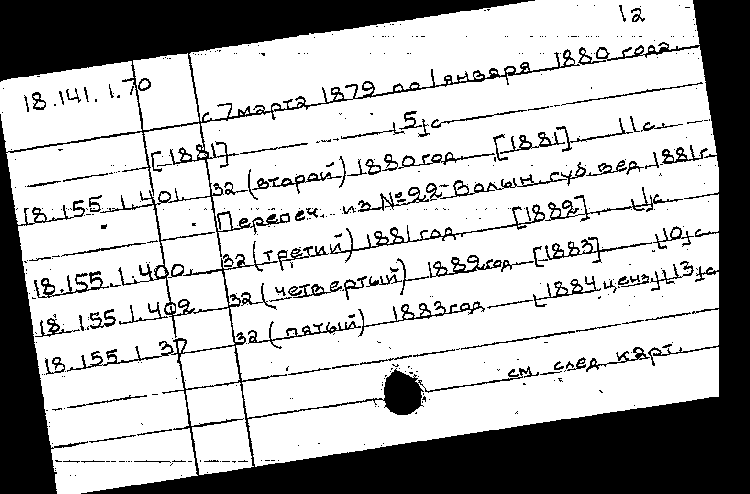 12
18.141.1.70 с 7 марта 1879 по 1 января 1880 года.
⌊5⌋ с
[1881]
18.155.1.401. за (второй) 1880 год. [1881]. 11 с.
Перепеч. из №22 Волын. губ. вед. 1881 г.
18.155.1.400. за (третий) 1881 год. [1882]. ⌊⌋с.
18.155.1.402. за (четвертый) 1882 год [1883] ⌊10⌋ с
18.155.1.37 за (пятый) 1883 год ⌊1884, ценз.⌋ ⌊13⌋ с
см. след. карт.